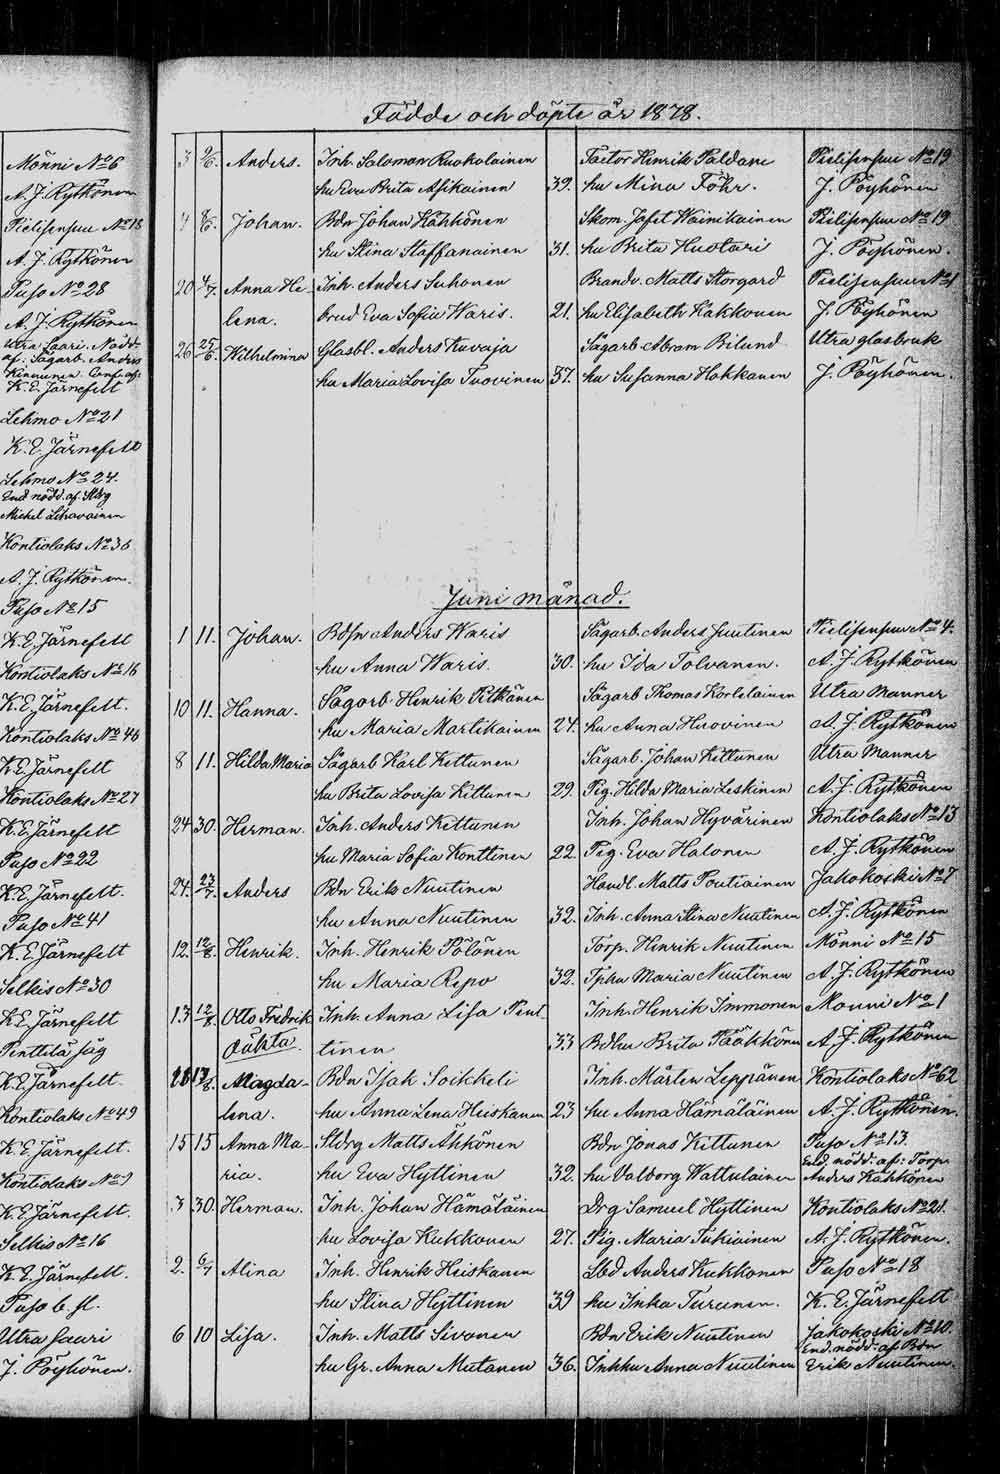 Mönni No 6
A. J. Rytkönen
Pielisensuu No 18
A. J. Rytkönen
Puso No 28
A. J. Rytkönen
Utra Laari. Nödd.
af: Sågarb. Anders
Kinnunen. Conf. af:
K. E. Järnefelt
Lehmo No 21
K. E. Järnefelt
Lehmo No 24.
End nödd. af. Sldrg
Michel Lehavainen
Kontiolaks No 36
A. J. Rytkönen.
Puso No 15
K. E. Järnefelt
Kontiolaks No 16
K. E. Järnefelt.
Kontiolaks No 46
K. E. Järnefelt
Kontiolaks No 27
K. E. Järnefelt
Puso No 22
K. E. Järnefelt.
Puso No 41
K. E. Järnefelt
Selkis No 30
K. E. Järnefelt
Penttilä såg
K. E. Järnefelt.
Kontiolaks No 49
K. E. Järnefelt.
Kontiolaks No 9
K. E. Järnefelt.
Selkis No 16
K. E. Järnefelt.
Puso b. st.
Utra Laari
J. Pöyhönen.
Födde och döpte år 1878.
3 9/6. Anders. Inh. Salomon Ruokolainen Factor Henrik Paldani Pielisensuu No 19
hu Eva Brita Asikainen 39. hu Mina Föhr. J. Pöyhönen
4 8/6. Johan. Bdn Johan Kähkönen Skom. Josef Wainikainen Pielisensuu No 19
hu Stina Staffanainen 31. hu Brita Huotari J. Pöyhönen.
20 4/7. Anna He- Inh. Anders Suhonen Brandv. Matts Storgard Pielisensuu No 1
lena. brud Eva Sofia Waris. 21. hu Elisabeth Kakkonen J. Pöyhönen
26 25/6. Wilhelmina Glasbl. Anders Kuvaja Sågarb Abram Bilund Utra glasbruk
hu Maria Lovisa Tuovinen 37. hu Susanna Hakkanen J. Pöyhönen.
Juni månad.
1 11. Johan. Bdsn Anders Waris Sågarb. Anders Juutinen Pielisensuu No 4.
hu Anna Waris. 30. hu Ida Tolvanen. A. J. Rytkönen
10 11. Hanna. Sågarb Henrik Pitkänen Sågarb Thomas Korlelainen Utra Manner
hu Maria Martikainen 24. hu Anna Huovinen A. J. Rytkönen
8 11. Hilda Maria Sågarb Karl Kettunen Sågarb. Johan Kettunen Utra Manner
hu Brita Lovisa Kettunen 29. Pig. Hilda Maria Leskinen A. J. Rytkönen
24 30. Herman. Inh. Anders Kettunen Inh. Johan Hyvärinen Kontiolaks No 13
hu Maria Sofia Konttinen 22. Pig. Eva Halonen A. J. Rytkönen
24. 23/7. Anders Bdn Erik Nuutinen Handl. Matts Poutiainen Jakokoski No 7
hu Anna Nuutinen 32. Inh. Anna Stina Nuutinen A. J. Rytkönen
12. 12/8. Henrik. Inh. Henrik Pölönen Torp. Henrik Nuutinen Mönni No 15
hu Maria Repo 32. Tphu Maria Nuutinen A. J. Rytkönen
13 12/8. Otto Fredrik Inh. Anna Lisa Pent- Inh. Henrik Immonen Mönni No 1
oäkta. tinen 33 Bdhu Brita Pääkkönen A. J. Rytkönen
28 13/8. Magda- Bdn Isak Soikkeli Inh. Mårten Leppänen Kontiolaks No 62
lena. hu Anna Lena Heiskanen 23 hu Anna Hämäläinen A. J. Rytkönen.
15 15 Anna Ma- Sldrg Matts Ähkönen Bdn Jonas Kettunen Puso No 13.
ria. hu Eva Hyttinen 32. hu Valborg Wattulainen End. nödd. af: Torp
Anders Kähkönen
3 30. Herman. Inh. Johan Hämäläinen Drg Samuel Hyttinen Kontiolaks No 21.
hu Lovisa Kukkonen 27. Pig. Maria Tukiainen A. J. Rytkönen.
2. 6/7 Alina Inh. Henrik Heiskanen Lbd Anders Kukkonen Puso No 18
hu Stina Hyttinen 39 hu Inka Turunen. K. E. Järnefelt
6 10 Lisa. Inh. Matts Sivonen Bdn Erik Nuutinen Jakokoski No 10.
hu Gr. Anna Mutanen 36. Inhhu Anna Nuutinen End. nödd. af Bdn
Erik Nuutinen.